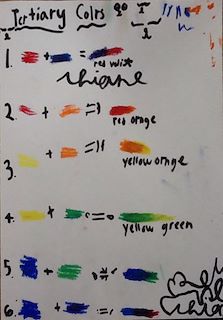 Tertiary Colrs
1. + =
red wolst
shiane
2. + =
red ornge
3. + =
yellow ornge
4. + =
yellow green
5. + =
6. + =